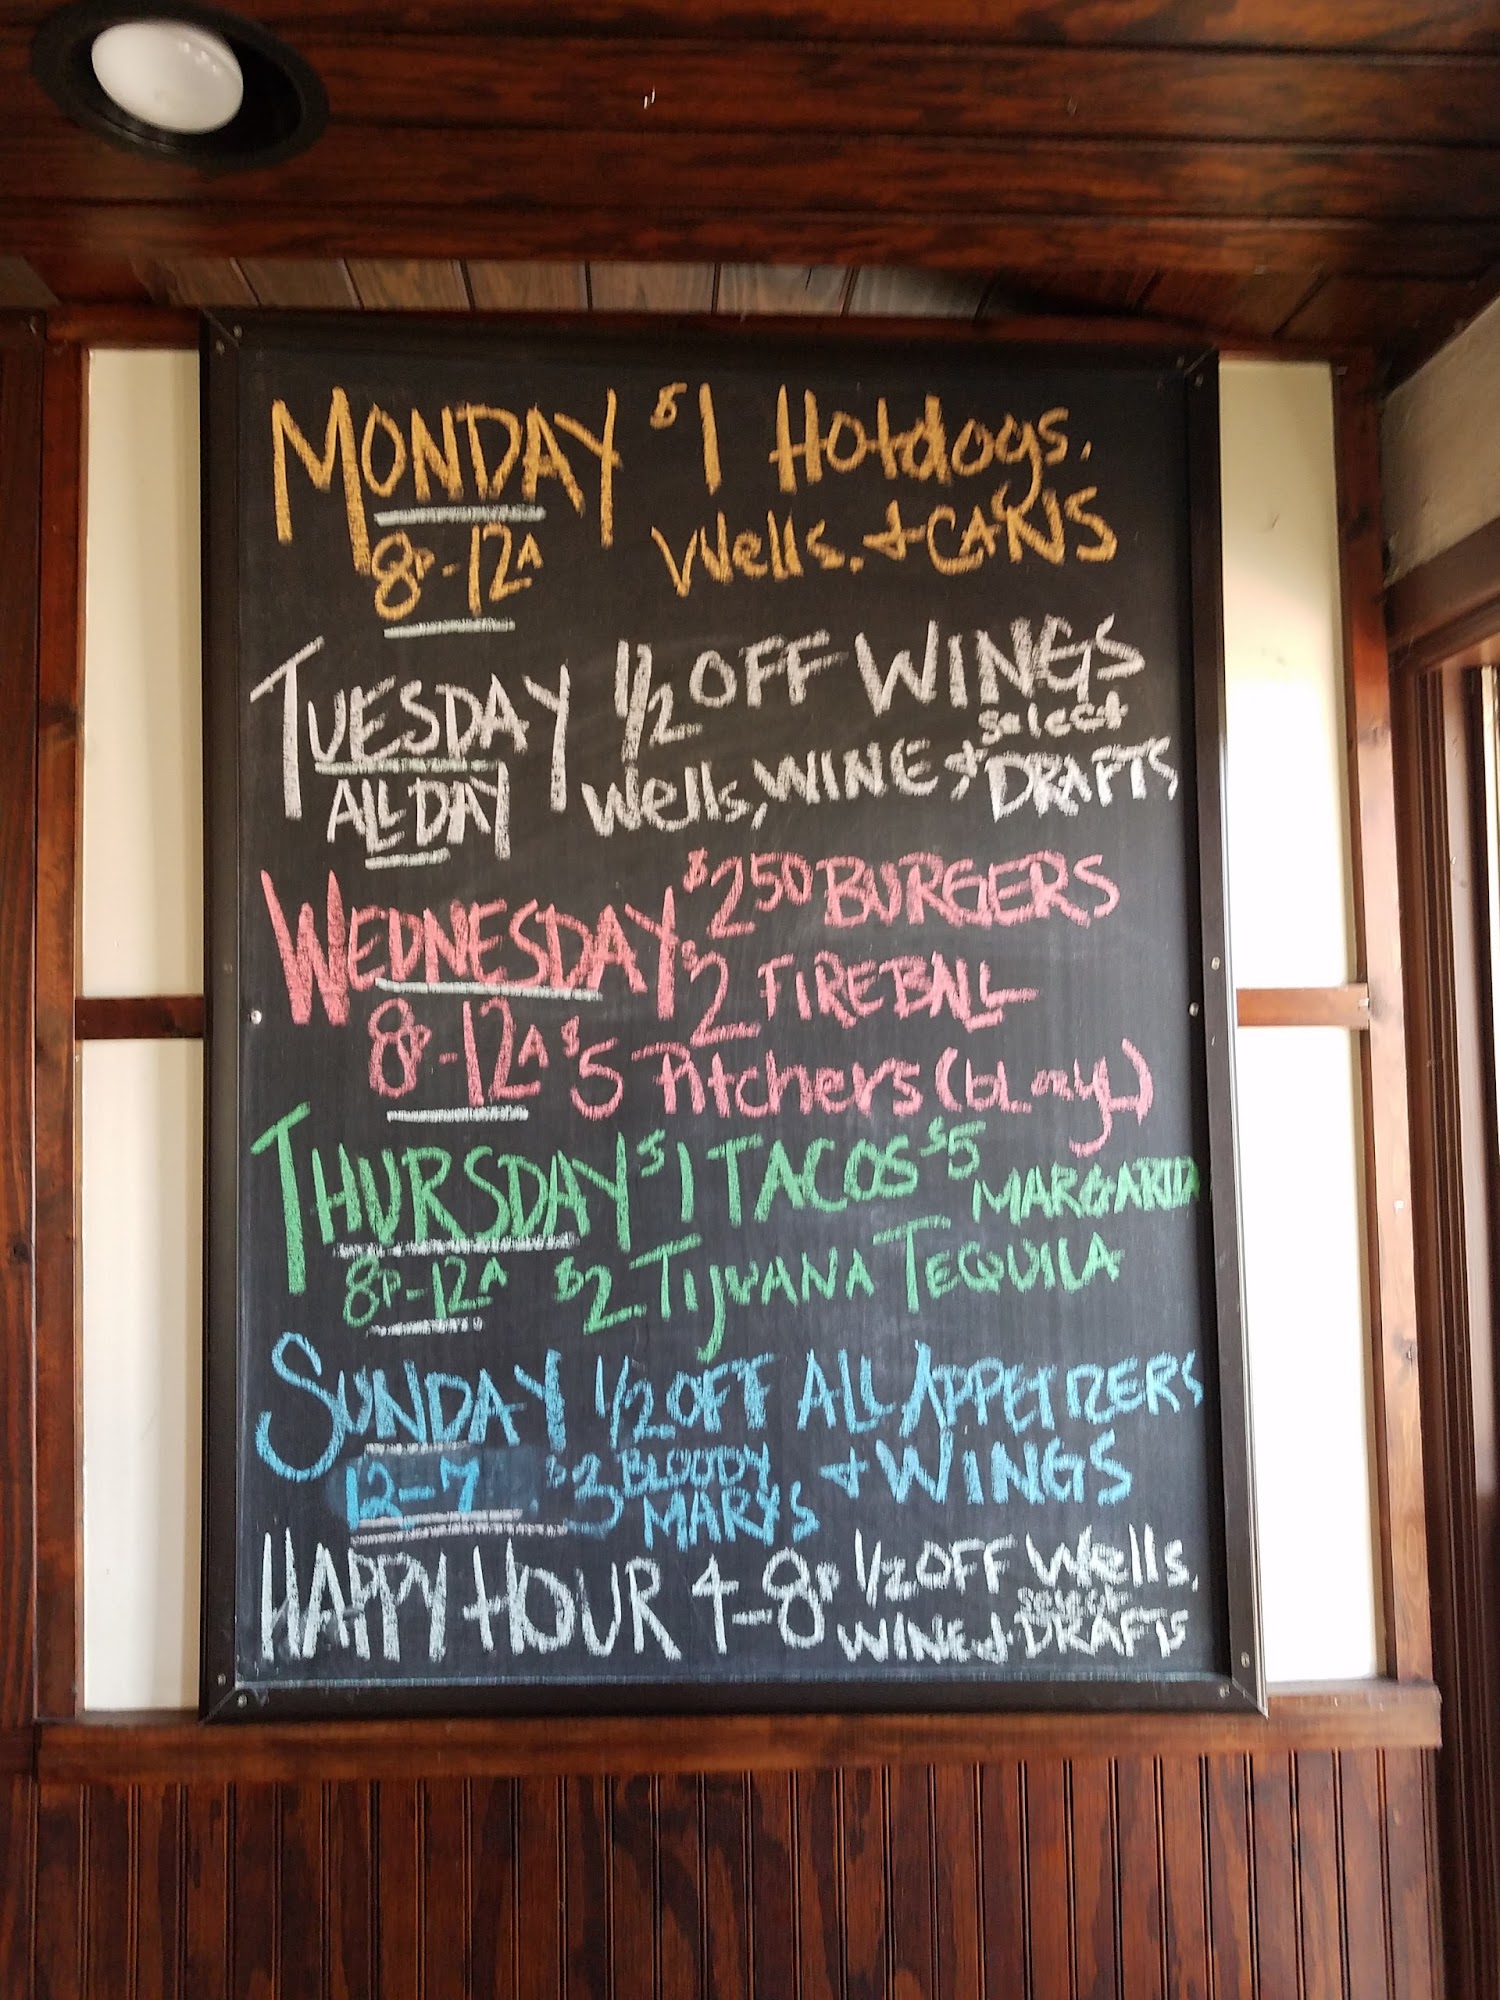 MONDAY $1 Hotdogs.
8P-12A Wells. & CANS
TUESDAY 1/2 OFF WINGS
ALL DAY Wells, WINE & select DRAFTS
WEDNESDAY $2 50 BURGERS
$2 FIREBALL
8P-12A $5 Pitchers
THURSDAY $1 TACOS $5 MARGARITA
8P-12A $2 TIJUANA TEQUILA
SUNDAY 1/2 OFF ALL APPETIZERS
12-7 $3 BLOODY MARYS & WINGS
HAPPY HOUR 4-8P 1/2 OFF Wells,
WINE & select DRAFTS